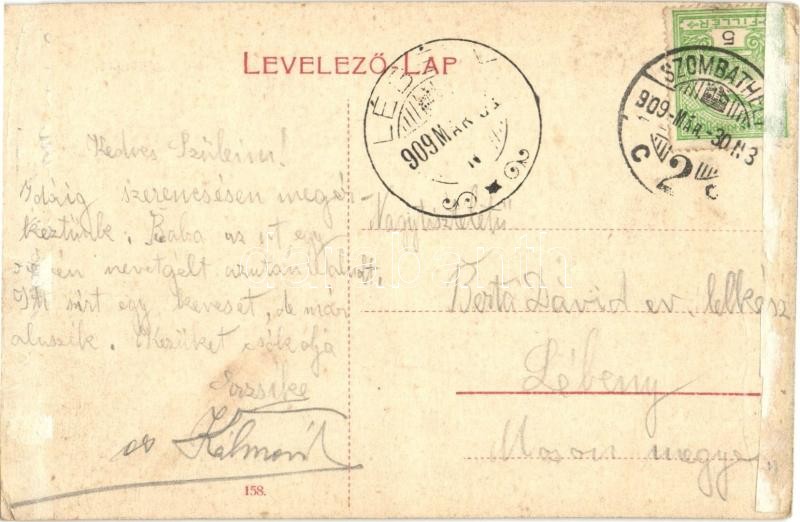 LEVELEZŐ LAP
5
FILLÉR
SZOMBATHELY
909 MÁR 30 N 3
C 2
LÉB
909 MÁR 31
N
Kedves Szüleim!
Idáig szerencsésen megér-
keztünk. Baba az út egy
részén nevetgélt azután aludt.
Itt sírt egy keveset, de már
aluszik. Kezüket csókolja
Erzsike
és Kálmán
Nagytiszteletű
Berta Dávid ev. lelkész
Lébeny
Moson megye
158.
darabanth